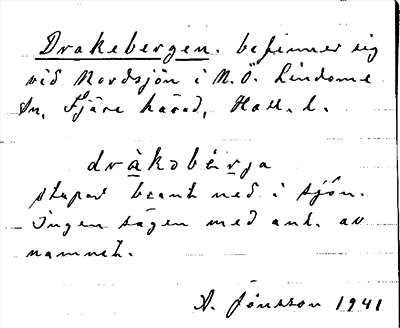 Drakebergen. befinner sig
vid Nordsjön i N.Ö. Lindome
sn, Fjäre härad, Hall. l.
dràkəbǽrja
stupar brant ned i sjön.
Ingen sägen med anl. av
namnet.
A. Jönsson 1941